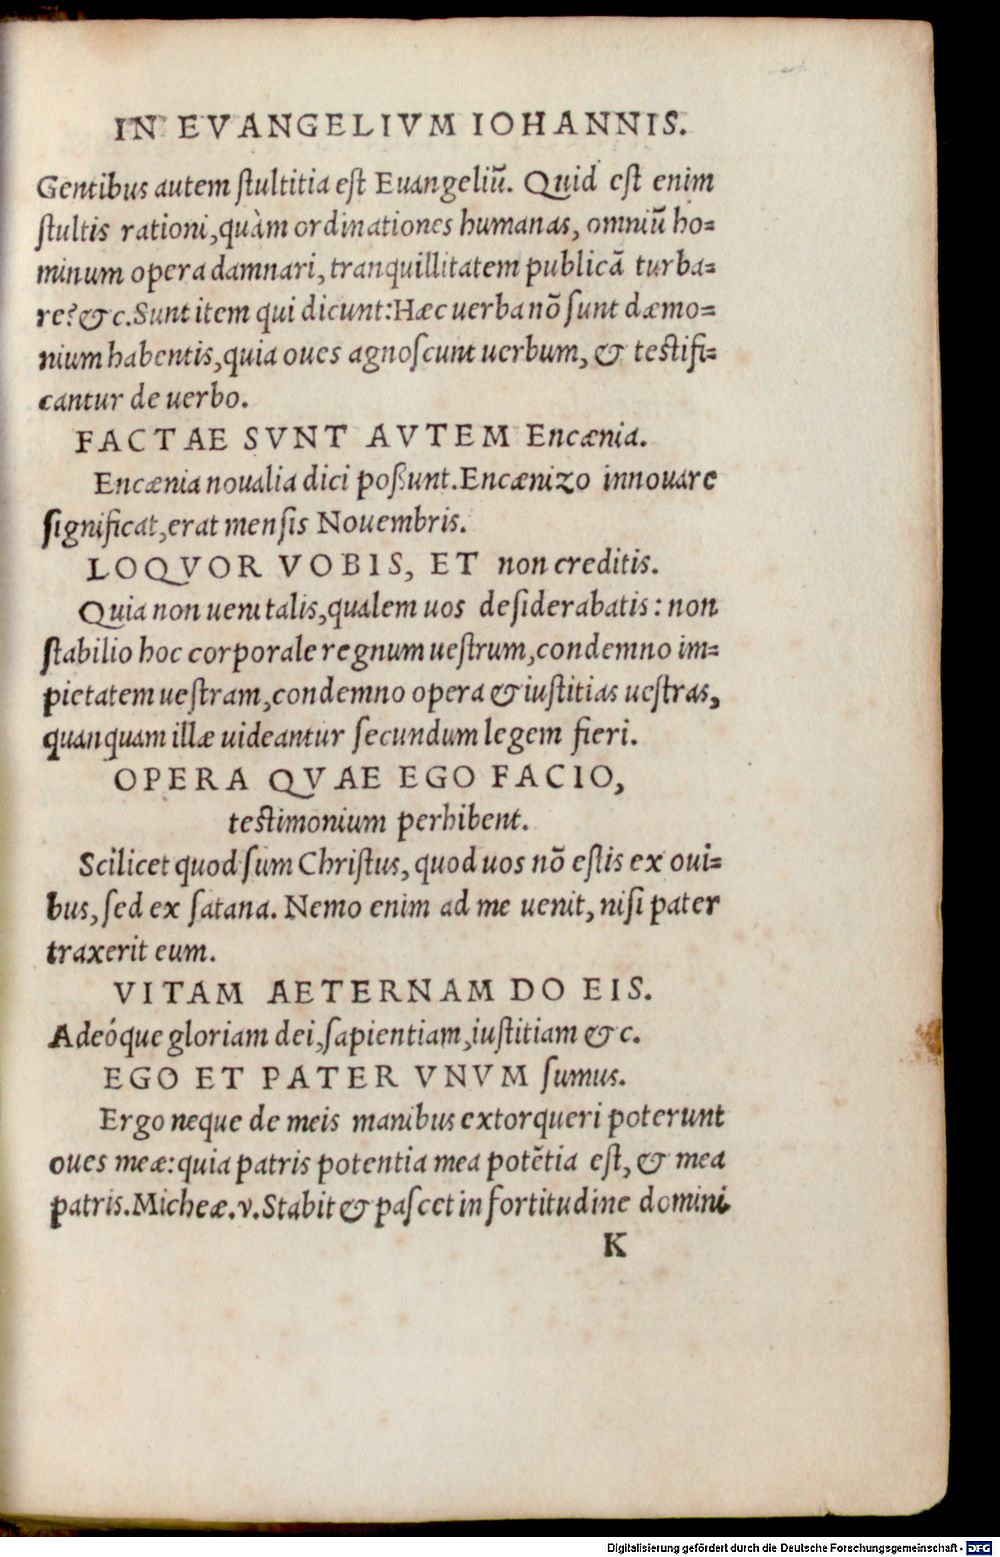 IN EVANGELIVM IOHANNIS.
Gentibus autem ſtultitia eſt Euangeliũ. Quid eſt enim
ſtultis rationi, quàm ordinationes humanas, omniũ ho=
minum opera damnari, tranquillitatem publicã turba=
re? &c. Sunt item qui dicunt: Hæc uerba nõ ſunt dæmo=
nium habentis, quia oues agnoſcunt uerbum, & teſtifi=
cantur de uerbo.
FACTAE SVNT AVTEM Encænia.
Encænia noualia dici poßunt. Encænizo innouare
ſignificat, erat menſis Nouembris.
LOQVOR VOBIS, ET non creditis.
Quia non ueni talis, qualem uos deſiderabatis: non
ſtabilio hoc corporale regnum ueſtrum, condemno im=
pietatem ueſtram, condemno opera & iuſtitias ueſtras,
quanquam illæ uideantur ſecundum legem fieri.
OPERA QVAE EGO FACIO,
teſtimonium perhibent.
Scilicet quod ſum Chriſtus, quod uos nõ eſtis ex oui=
bus, ſed ex ſatana. Nemo enim ad me uenit, niſi pater
traxerit eum.
VITAM AETERNAM DO EIS.
Adeóque gloriam dei, ſapientiam, iuſtitiam &c.
EGO ET PATER VNVM ſumus.
Ergo neque de meis manibus extorqueri poterunt
oues meæ: quia patris potentia mea potẽtia eſt, & mea
patris. Micheæ. v. Stabit & paſcet in fortitudine domini
K
Digitalisierung gefördert durch die Deutsche Forschungsgemeinschaft - DFG